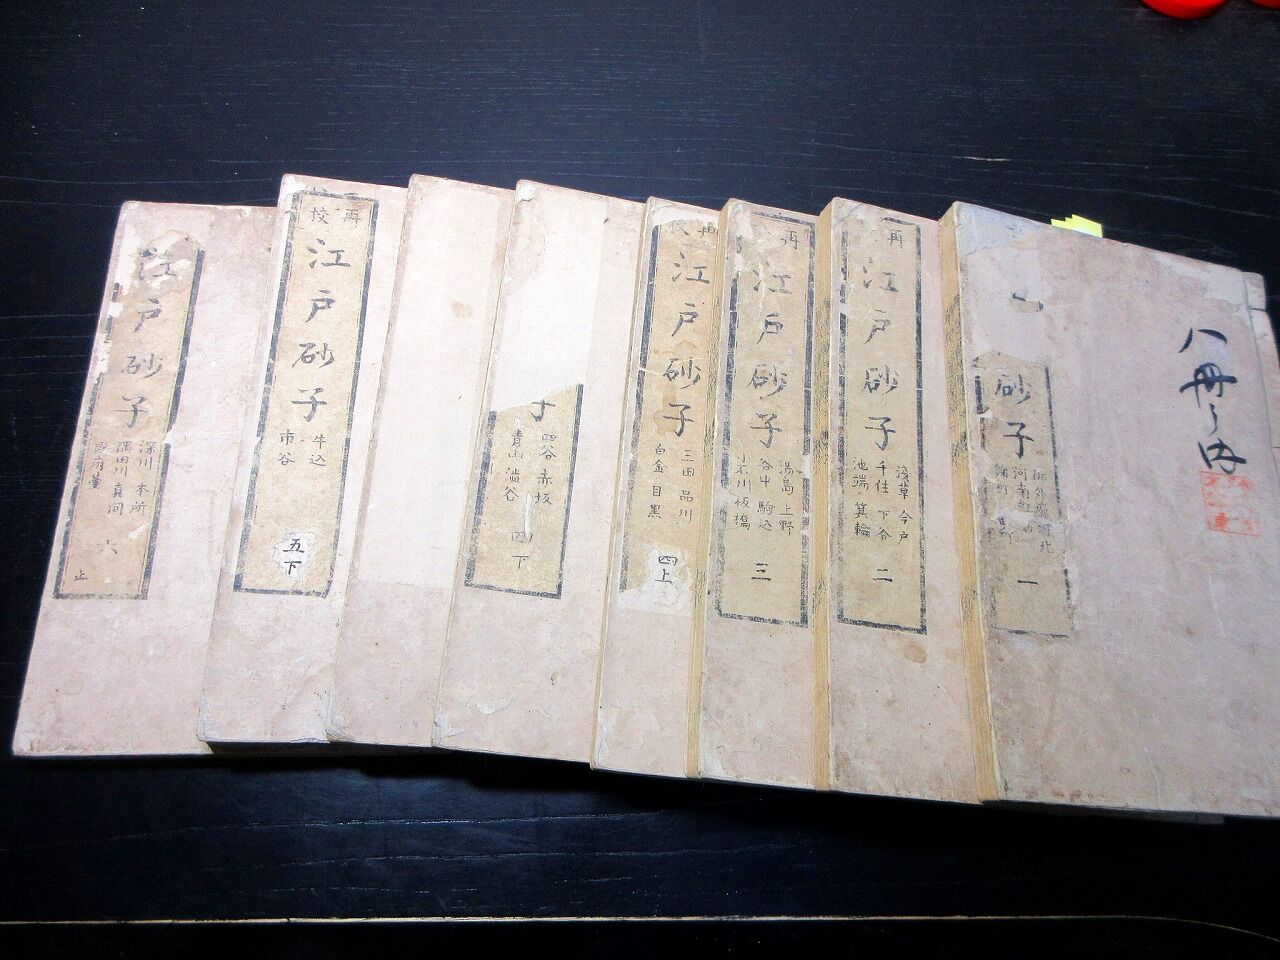 八冊之内
砂子
一
再
江戸砂子
浅草 今戸
千住 下谷
池端 箕輪
二
再
江戸砂子
湯島 上野
谷中 駒込
小石川 板橋
三
江戸砂子
三田 品川
白金 目黒
四上
子
四谷 赤坂
青山 渋谷
四下
再校
江戸砂子
牛込
市谷
五下
江戸砂子
深川 本所
隅田川 真間
六
止